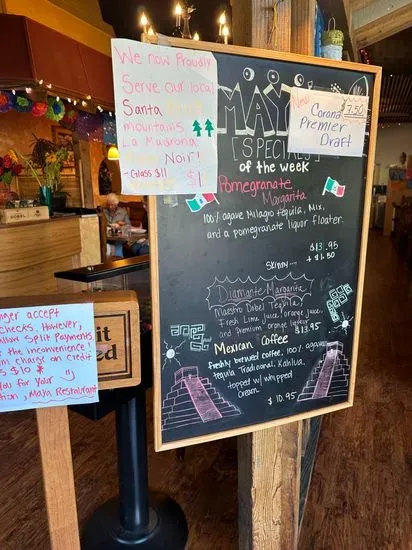 We now Proudly
Serve our local
Santa
mountains
La Madrona
Noir!
- Glass $11
$1
New
$7.50
Corona
Premier
Draft
MAYA
[SPECIALS]
of the week
Pomegranate
Margarita
100% agave Milagro tequila, Mix,
and a pomegranate liquor floater.
$13.95
Skinny --- + $1.50
Diamante Margarita
Maestro Dobel Tequila
Fresh Lime juice, orange juice,
and Premium orange liqueur
$13.95
Mexican Coffee
freshly brewed coffee, 100% agave
tequila Tradicional, Kahlua,
topped w/ whipped
Cream
$10.95
nger accept
checks. However,
llow Split Payments.
r the inconvenience!
um charge on credit
s $10
you for your
tion, Maya Restaurant
it
ed